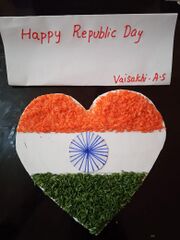 Happy Republic Day
Vaisakhi.A.S